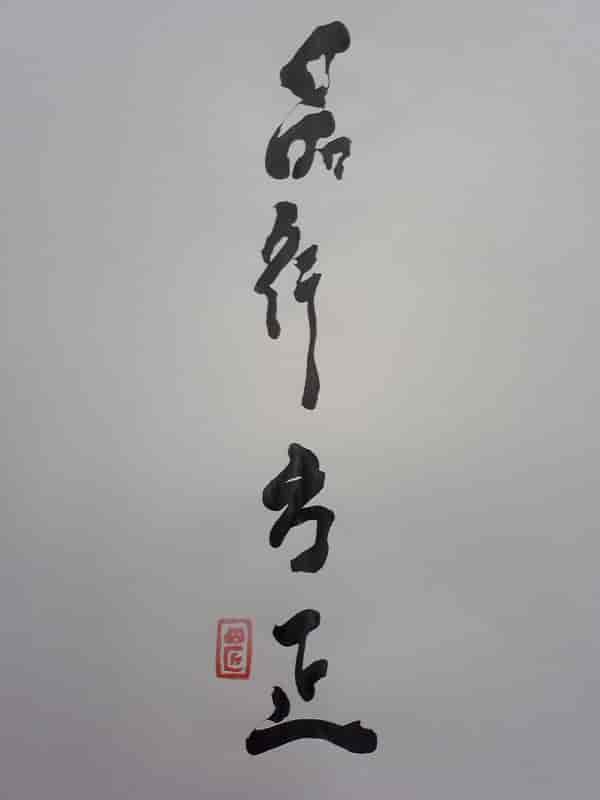 品行方正